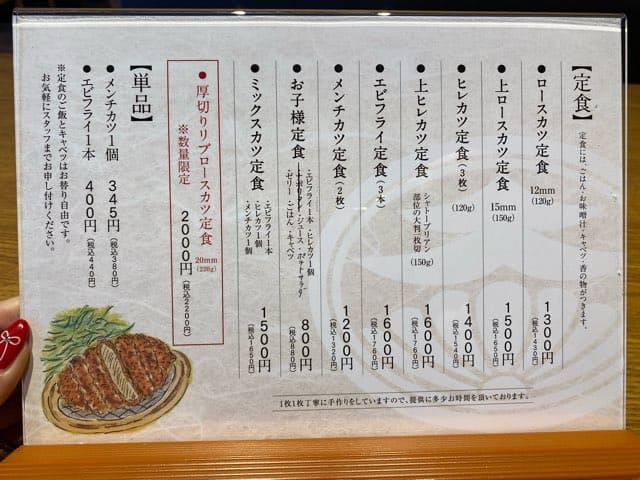 【定食】
定食には、ごはん・お味噌汁・キャベツ・香の物がつきます。
●ロースカツ定食
12mm
(120g)
1300円
(税込1430円)
●上ロースカツ定食
15mm
(150g)
1500円
(税込1650円)
●ヒレカツ定食(3枚)
(120g)
1400円
(税込1540円)
●上ヒレカツ定食
シャトーブリアン
部位の大判二枚
(150g)
1600円
(税込1760円)
●エビフライ定食(3本)
1600円
(税込1760円)
●メンチカツ定食(2枚)
1200円
(税込1320円)
●お子様定食
・エビフライ1本・ヒレカツ1個
・ナポリタン・ジュース・ポテトサラダ
・ゼリー・ごはん・キャベツ
800円
(税込880円)
●ミックスカツ定食
・エビフライ1本
・ヒレカツ1個
・メンチカツ1個
1500円
(税込1650円)
●厚切りリブロースカツ定食
20mm
(220g)
※数量限定
2000円
(税込2200円)
【単品】
●メンチカツ1個 345円(税込380円)
●エビフライ1本 400円(税込440円)
※定食のご飯とキャベツはお替り自由です。
お気軽にスタッフまでお申し付けください。
1枚1枚丁寧に手作りをしていますので、提供に多少お時間を頂いております。